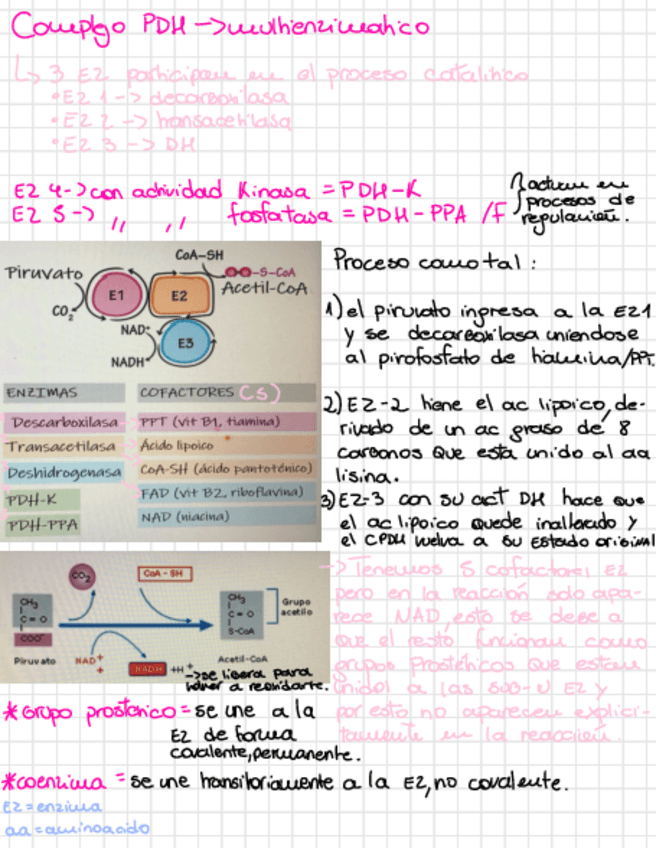 Complejo PDH -> multienzimatico
↳ 3 EZ participan en el proceso catalitico
•EZ 1 -> decarboxilasa
•EZ 2 -> transacetilasa
•EZ 3 -> DH
EZ 4-> con actividad Kinasa = PDH-K
EZ 5-> ,, ,, fosfatasa = PDH-PPA /F
actuan en
procesos de
regulación.
CoA-SH
Piruvato
-S-CoA
Acetil-CoA
E1
E2
CO2
NAD+
E3
NADH
ENZIMAS
COFACTORES (5)
Descarboxilasa
PPT (vit B1, tiamina)
Transacetilasa
Ácido lipoico
Deshidrogenasa
CoA-SH (ácido pantoténico)
PDH-K
FAD (vit B2, riboflavina)
PDH-PPA
NAD (niacina)
Proceso como tal :
1) el piruvato ingresa a la EZ1
y se decarboxilasa uniendose
al pirofosfato de tiamina/PPT.
2) EZ-2 tiene el ac lipoico, de-
rivado de un ac graso de 8
carbonos que esta unido al aa
lisina.
3) EZ-3 con su act DH hace que
el ac lipoico quede inalterado y
el CPDH vuelva a su estado original
CO2
CoA - SH
CH3
C=O
COO-
Piruvato
NAD+
+
NADH
+H+
CH3
C=O
S-CoA
Acetil-CoA
Grupo
acetilo
->se libera para
volver a reoxidarte.
-> Tenemos 5 cofactores EZ
pero en la reacción solo apa-
rece NAD, esto se debe a
que el resto funcionan como
grupos Prostéticos que estan
unidos a las sub-U EZ y
por esto no aparecen explici-
tamente en la reacción.
*Grupo prostetico = se une a la
EZ de forma
covalente, permanente.
*coenzima = se une transitoriamente a la EZ, no covalente.
EZ = enzima
aa = aminoacido